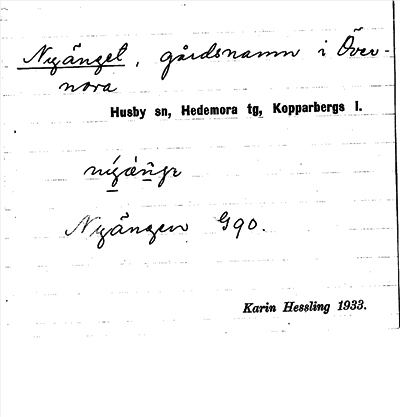 Nyänget, gårdsnamn i Över-
nora
Husby sn, Hedemora tg, Kopparbergs l.
Nyängen G90.
Karin Hessling 1933.